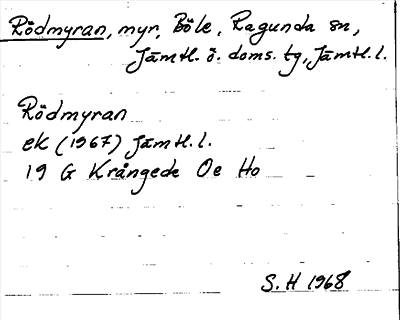 Rödmyran, myr, Böle, Ragunda sn,
Jämtl. ö. doms. tg, Jämtl. l.
Rödmyran
ek (1967) Jämtl. l.
19 G Krångede Oe Ho
S. H 1968